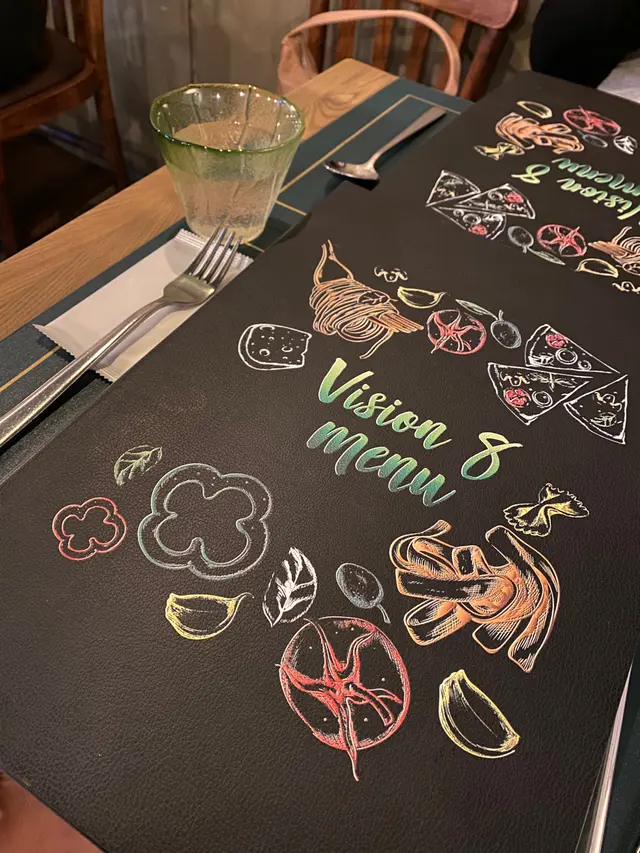 Vision 8
menu
Vision 8
menu